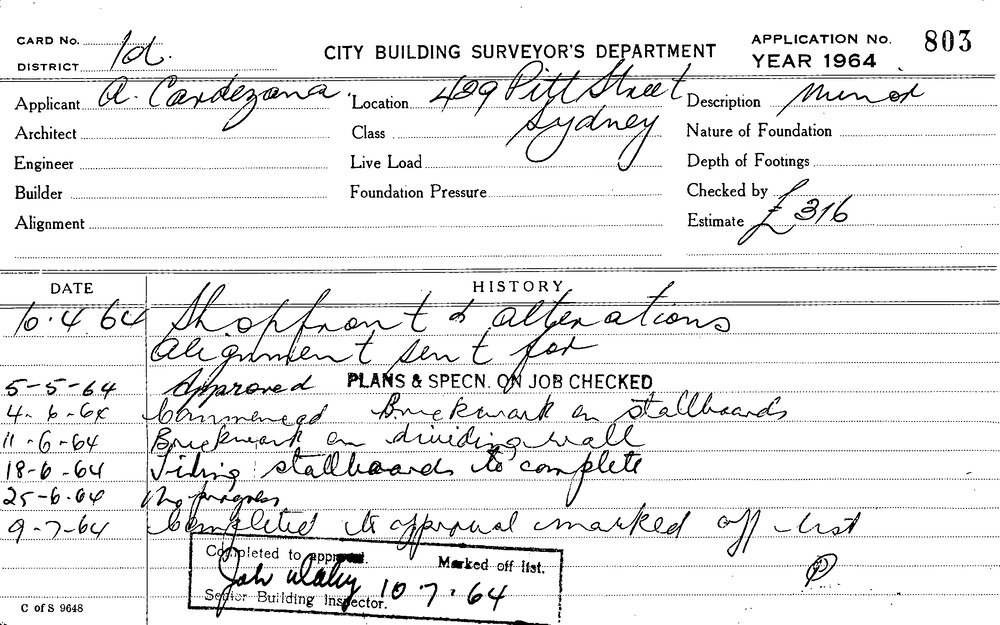 CARD No. 1d.
DISTRICT
CITY BUILDING SURVEYOR'S DEPARTMENT
APPLICATION No. 803
YEAR 1964
Applicant A. Cardezana.
Location 409 Pitt Street
Sydney
Description Minor
Architect
Class
Nature of Foundation
Engineer
Live Load
Depth of Footings
Builder
Foundation Pressure
Checked by
Alignment
Estimate £316
DATE HISTORY
10.4.64 Shopfront & alterations
Alignment sent for
5-5-64 Approved PLANS & SPECN. ON JOB CHECKED
4-6-64 Commenced Brickwork on stallboards
11-6-64 Brickwork on dividing wall
18-6-64 Tiling stallboards to complete
25-6-64 No progress
9-7-64 Completed to approval marked off list
Completed to approval. Marked off list.
10.7.64
Senior Building Inspector.
C of S 9648